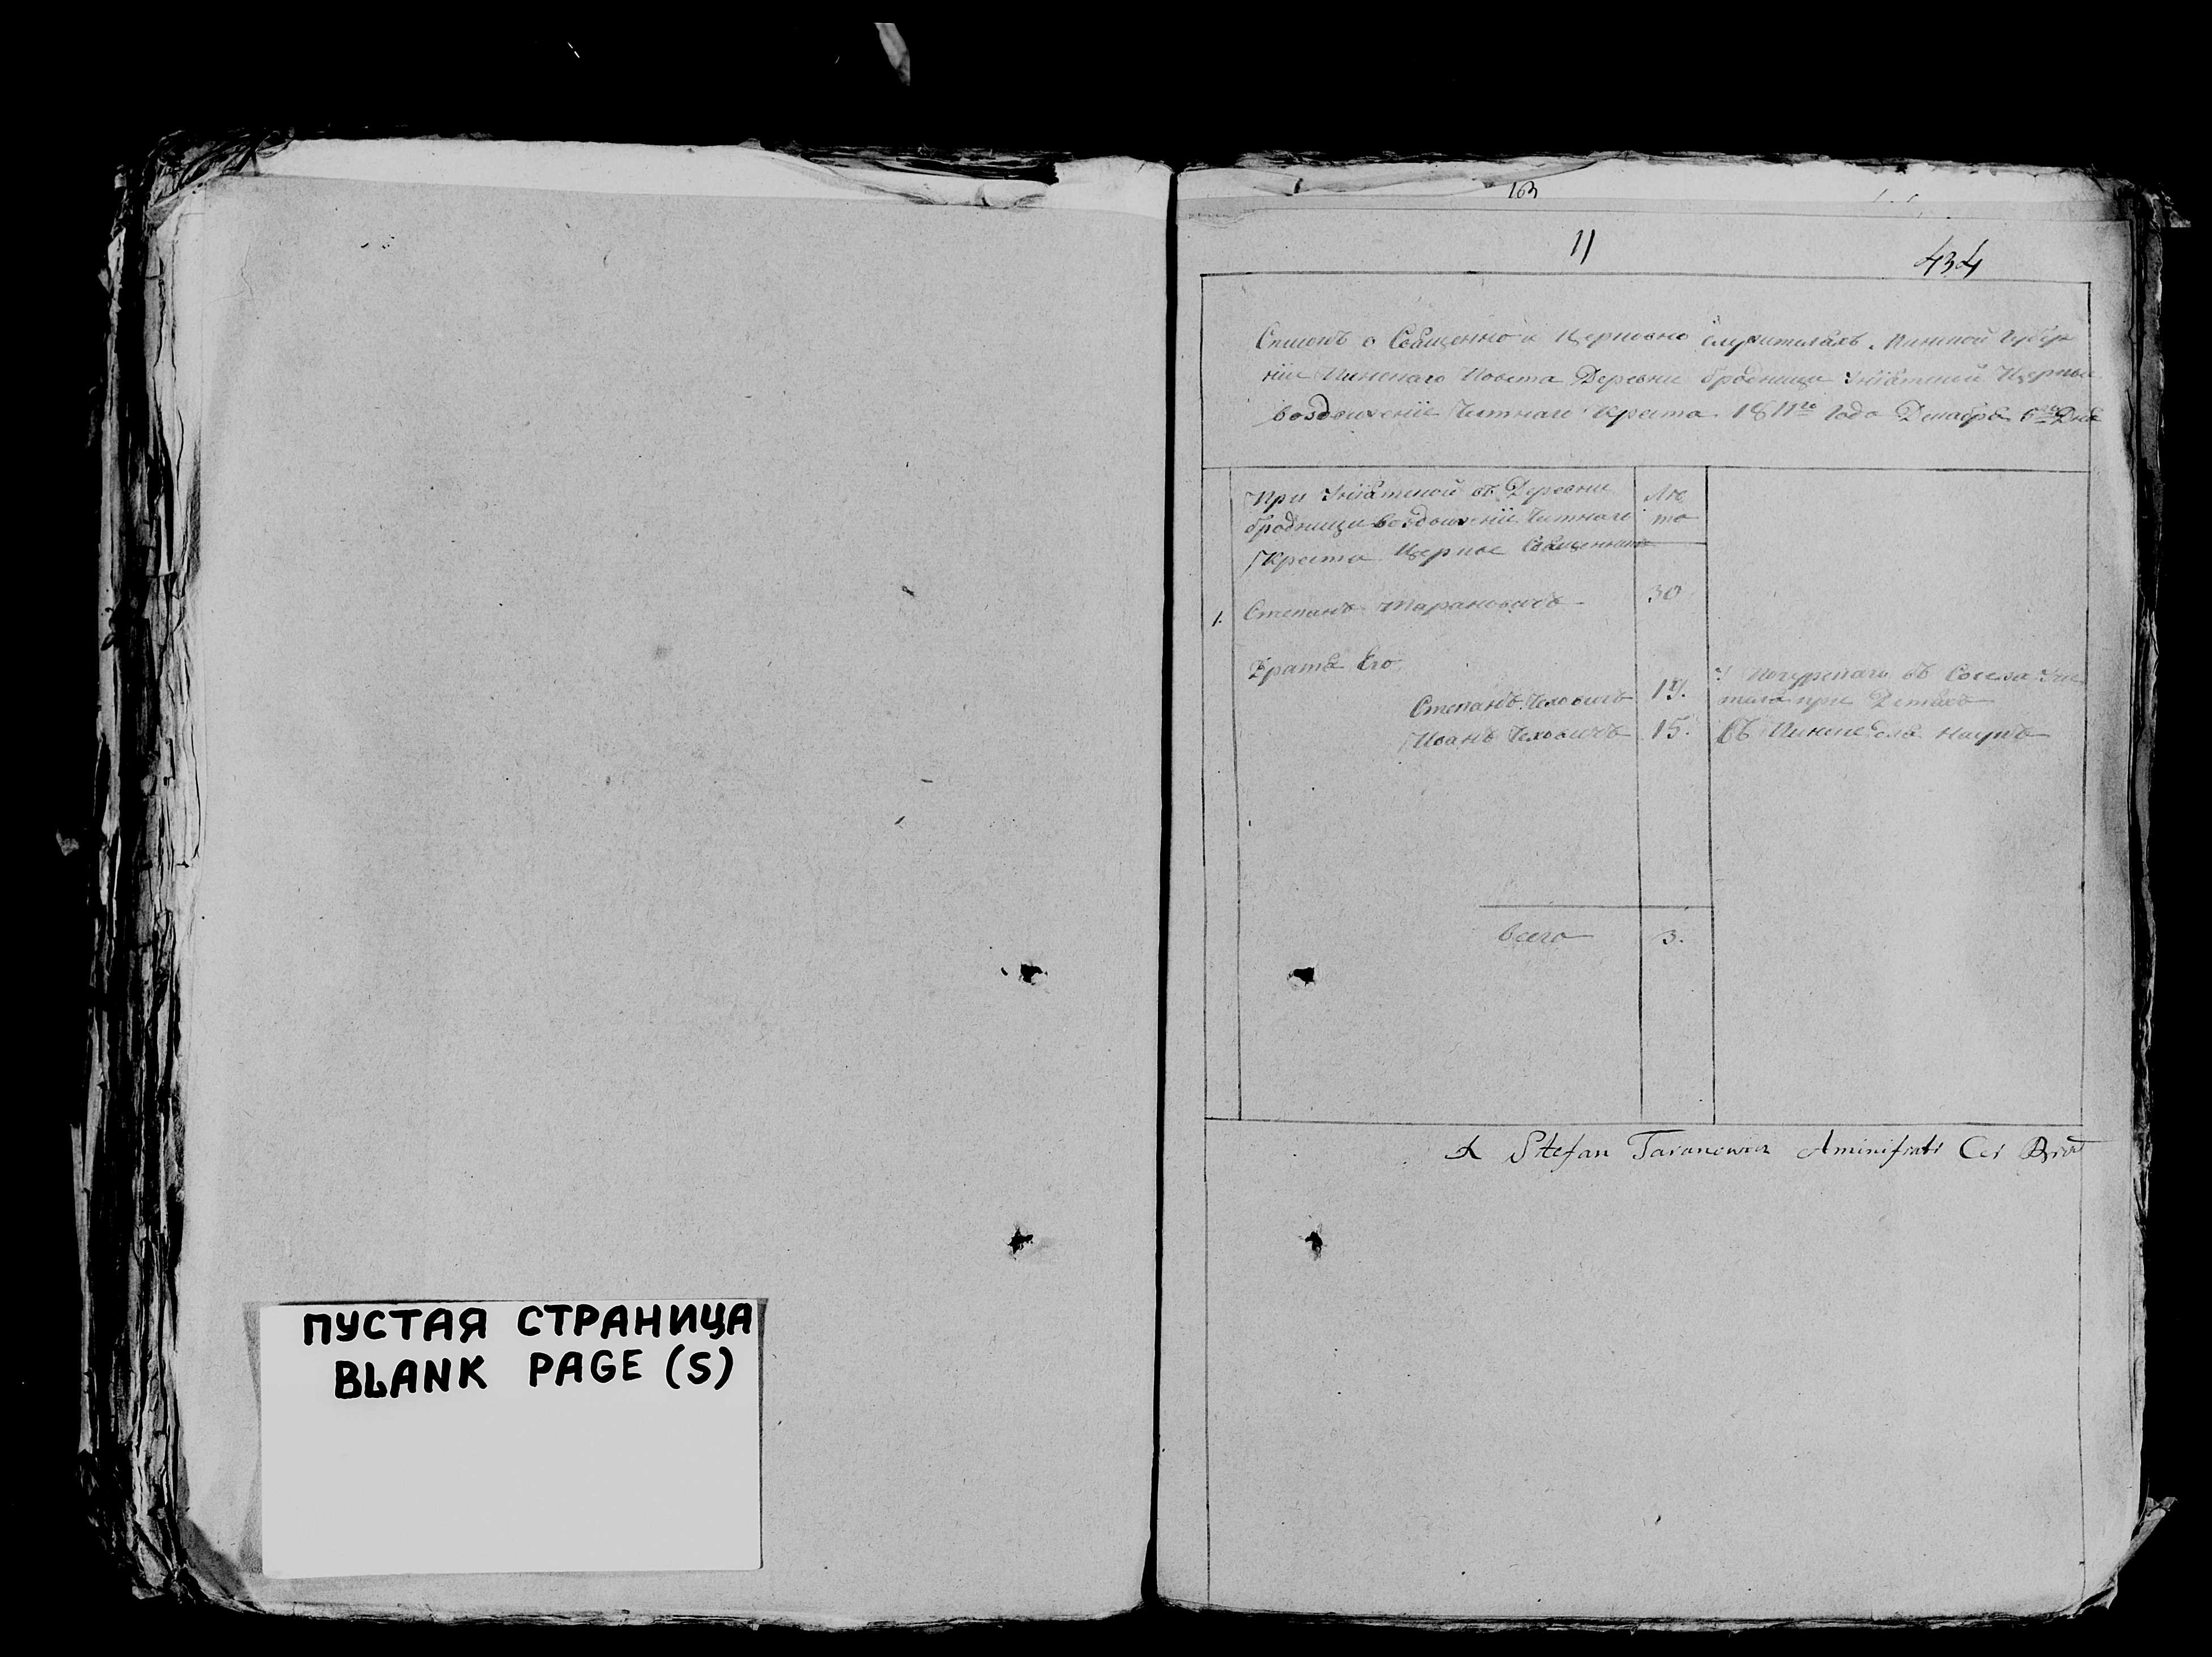 ПУСТАЯ СТРАНИЦА
BLANK PAGE (S)
163
11
434
Списокъ о Священно и Церковно служителяхъ. Минской Губер
нiи Пинскаго Повета Деревни бродници Унiатской Церкви
воздвиженiе Честнаго Креста 1811го Года Декабря Дня
При Унiатской въ Деревни
бродници воздвиженiи Честнаго
Креста Церкве Священникъ
Ле
та
1. Степанъ Тарановичъ - 30
Братья Его
Степанъ 19. У въ
при Детяхъ
Иванъ 15. въ Пинске для Наукъ
всего 3.
X Stefan Taranowicz Aminifratr Cer Brod